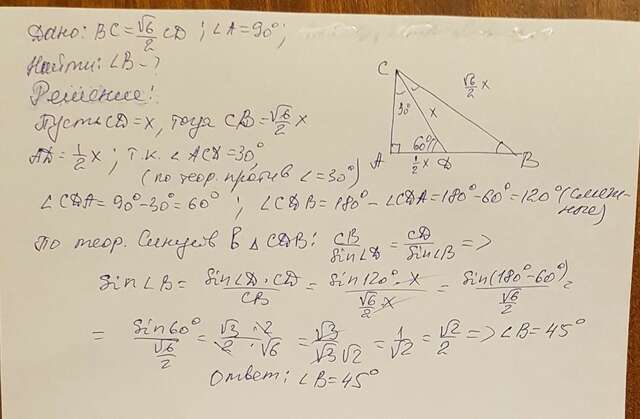 Дано: BC = √6/2 CD ; ∠A = 90°;
Найти: ∠B - ?
Решение:
Пусть CD = x, тогда CB = √6/2 x
AD = 1/2 x ; т.к. ∠ACD = 30°
(по теор. против ∠ = 30°)
∠CDA = 90° - 30° = 60° ; ∠CDB = 180° - ∠CDA = 180° - 60° = 120° (смежные)
По теор. Синусов в △CDB: CB/Sin∠D = CD/Sin∠B =>
Sin∠B = Sin∠D · CD/CB = Sin120° · x/(√6/2 · x) = Sin(180° - 60°)/(√6/2) =
= Sin60°/(√6/2) = √3 · 2/2 · √6 = √3/√3√2 = 1/√2 = √2/2 => ∠B = 45°
Ответ: ∠B = 45°
C
√6/2 x
30°
x
60°
A
1/2 x
D
B